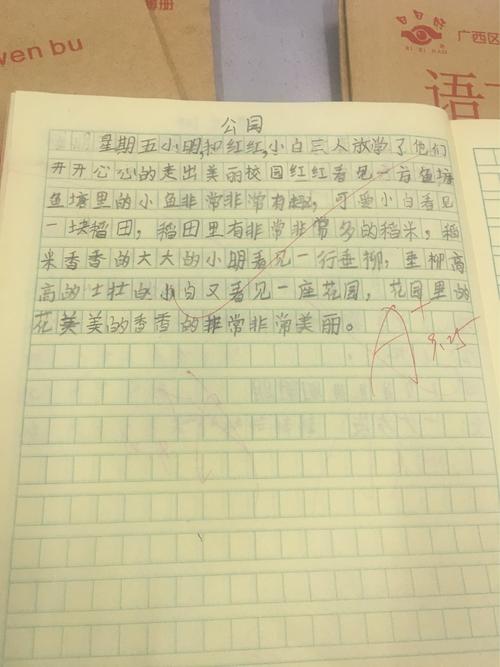 wen bu
册
广西区
语
RI RI HAO
公园
星期五小明,和红红,小白三人放学了他们
开开心心的走出美丽校园红红看见一方鱼塘
鱼塘里的小鱼非常非常有趣,可爱小白看见
一块稻田,稻田里有非常非常多的稻米,稻
米香香的大大的小明看见一行垂柳,垂柳高
高的壮壮的小白又看见一座花园,花园里的
花美美的香香的非常非常美丽。
A+
9.25